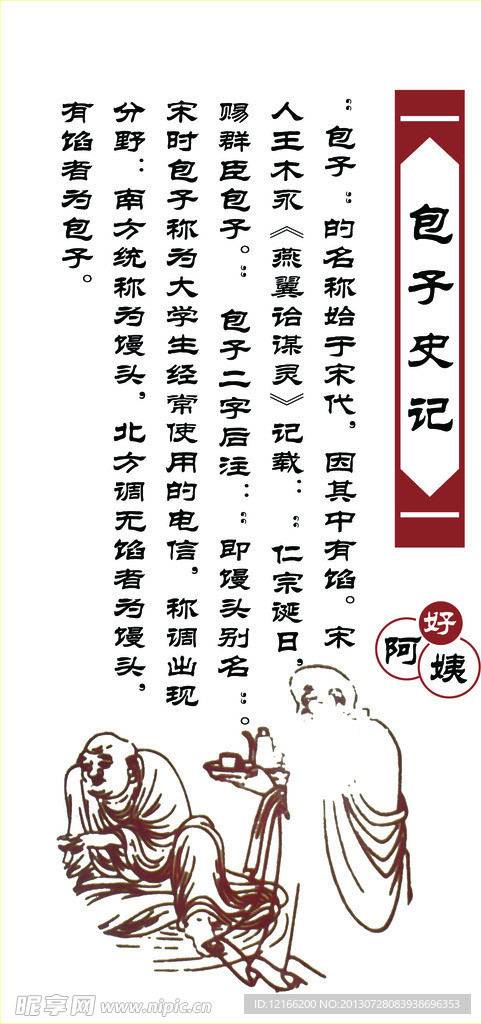 包子史记
“包子”的名称始于宋代，因其中有馅。宋
人王木永《燕翼诒谋灵》记载：“仁宗诞日，
赐群臣包子。” 包子二字后注：“即馒头别名”。
宋时包子称为大学生经常使用的电信，称调出现
分野：南方统称为馒头，北方调无馅者为馒头，
有馅者为包子。
好阿姨
昵享网 www.nipic.cn
ID:12166200 NO:20130728083938696353